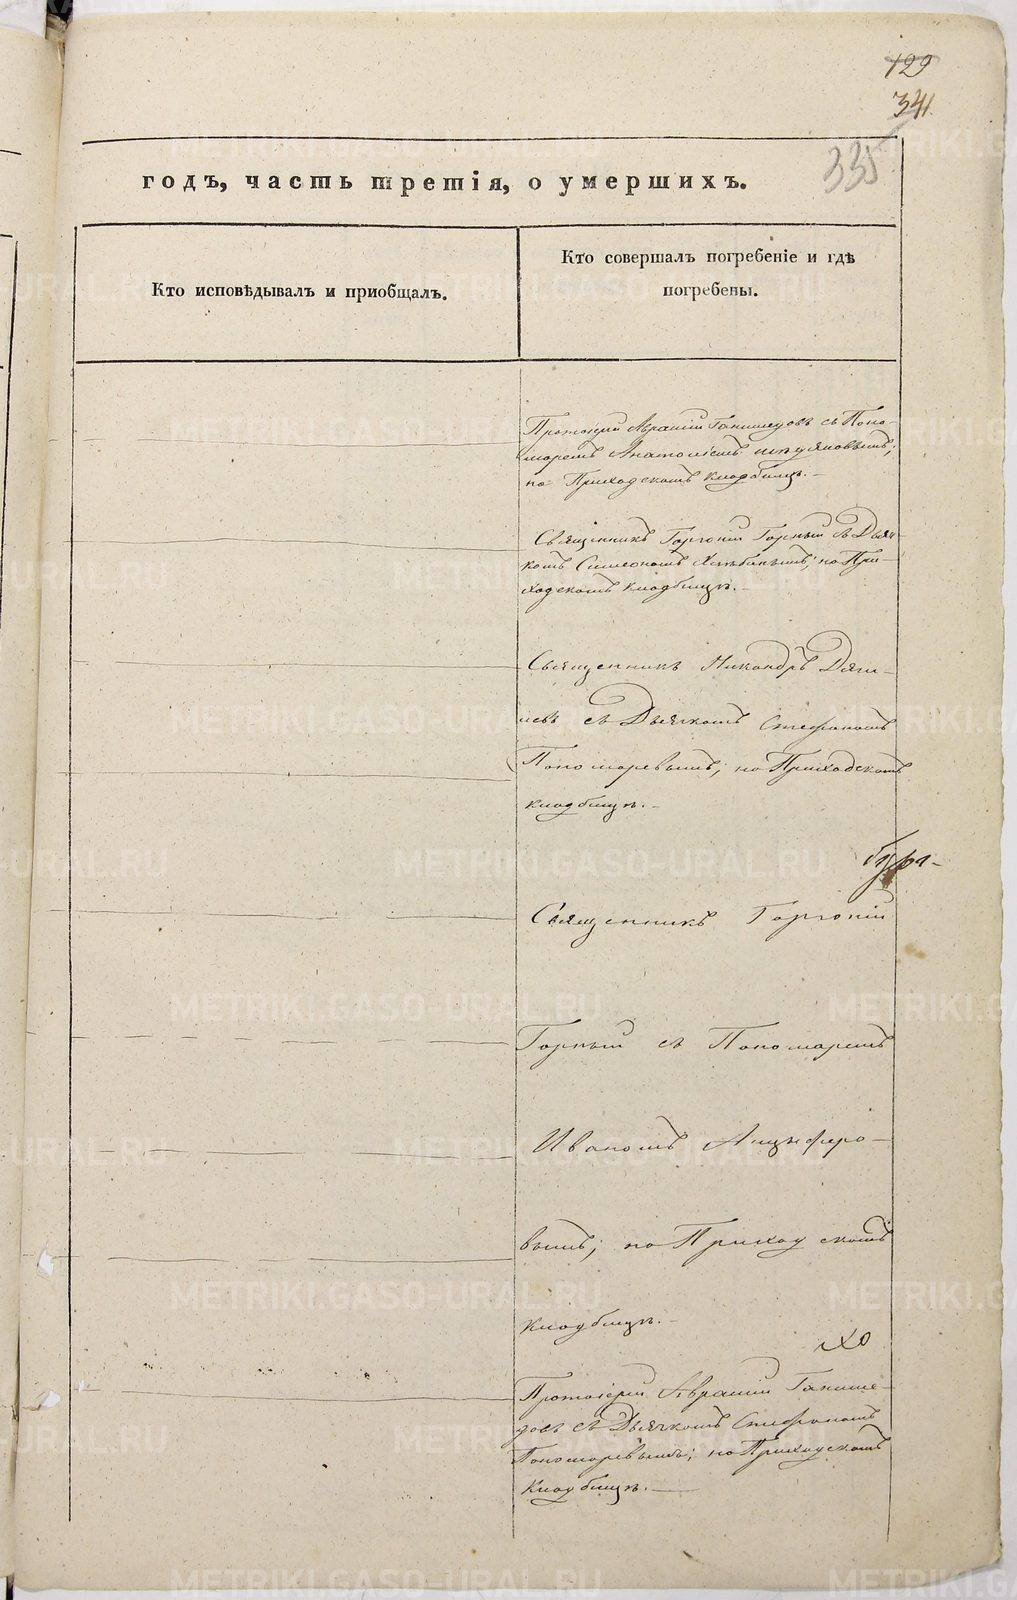 129
341
335
годъ, часть третія, о умершихъ.
Кто исповѣдывалъ и пріобщалъ.
Кто совершалъ погребеніе и гдѣ
погребены.
Протоіерей Авраамій Ганимедовъ съ Поно-
маремъ Анатоліемъ
на Приходскомъ кладбищѣ.
Священникъ Горгоній Горный съ Дьяч
комъ Симеономъ Хлѣбинымъ; на При-
ходскомъ кладбищѣ.
Священникъ Никандръ Дяги-
левъ съ Дьячкомъ Стефаномъ
Пономаревымъ; на Приходскомъ
кладбищѣ.
Священникъ Горгоній
Горный съ Пономаремъ
Иваномъ Анцыферо-
вымъ; на Приходскомъ
кладбищѣ.
Протоіерей Авраамій Ганиме-
довъ съ Дьячкомъ Стефаномъ
Пономаревымъ; на Приходскомъ
кладбищѣ.
METRIKI.GASO-URAL.RU